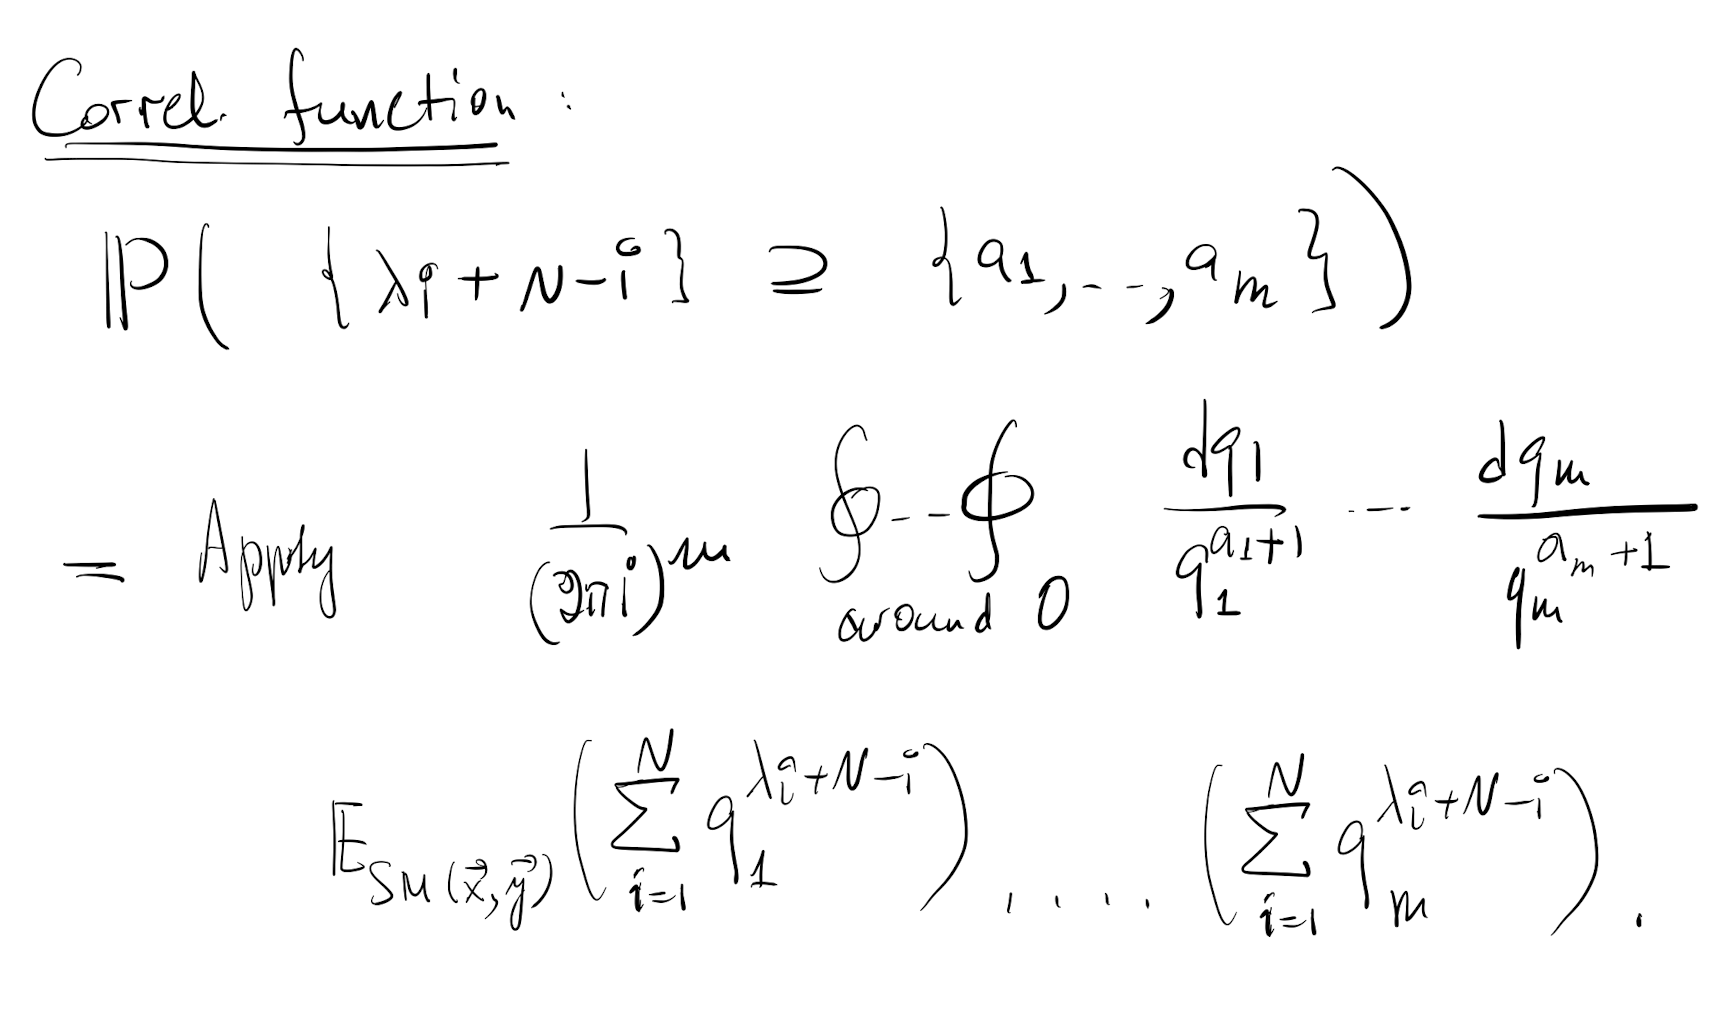 Correl. function :
ℙ( { λi + N−i } ⊇ {a₁, - - -, aₘ} )
= Apply 1/(2πi)^m ∮ - - - ∮ around 0 dq₁/q₁^{a₁+1} ... dqₘ/qₘ^{aₘ+1}
𝔼_{SM(x⃗,y⃗)} ( ∑_{i=1}^{N} q₁^{λi+N−i} ) ..... ( ∑_{i=1}^{N} qₘ^{λi+N−i} ) .